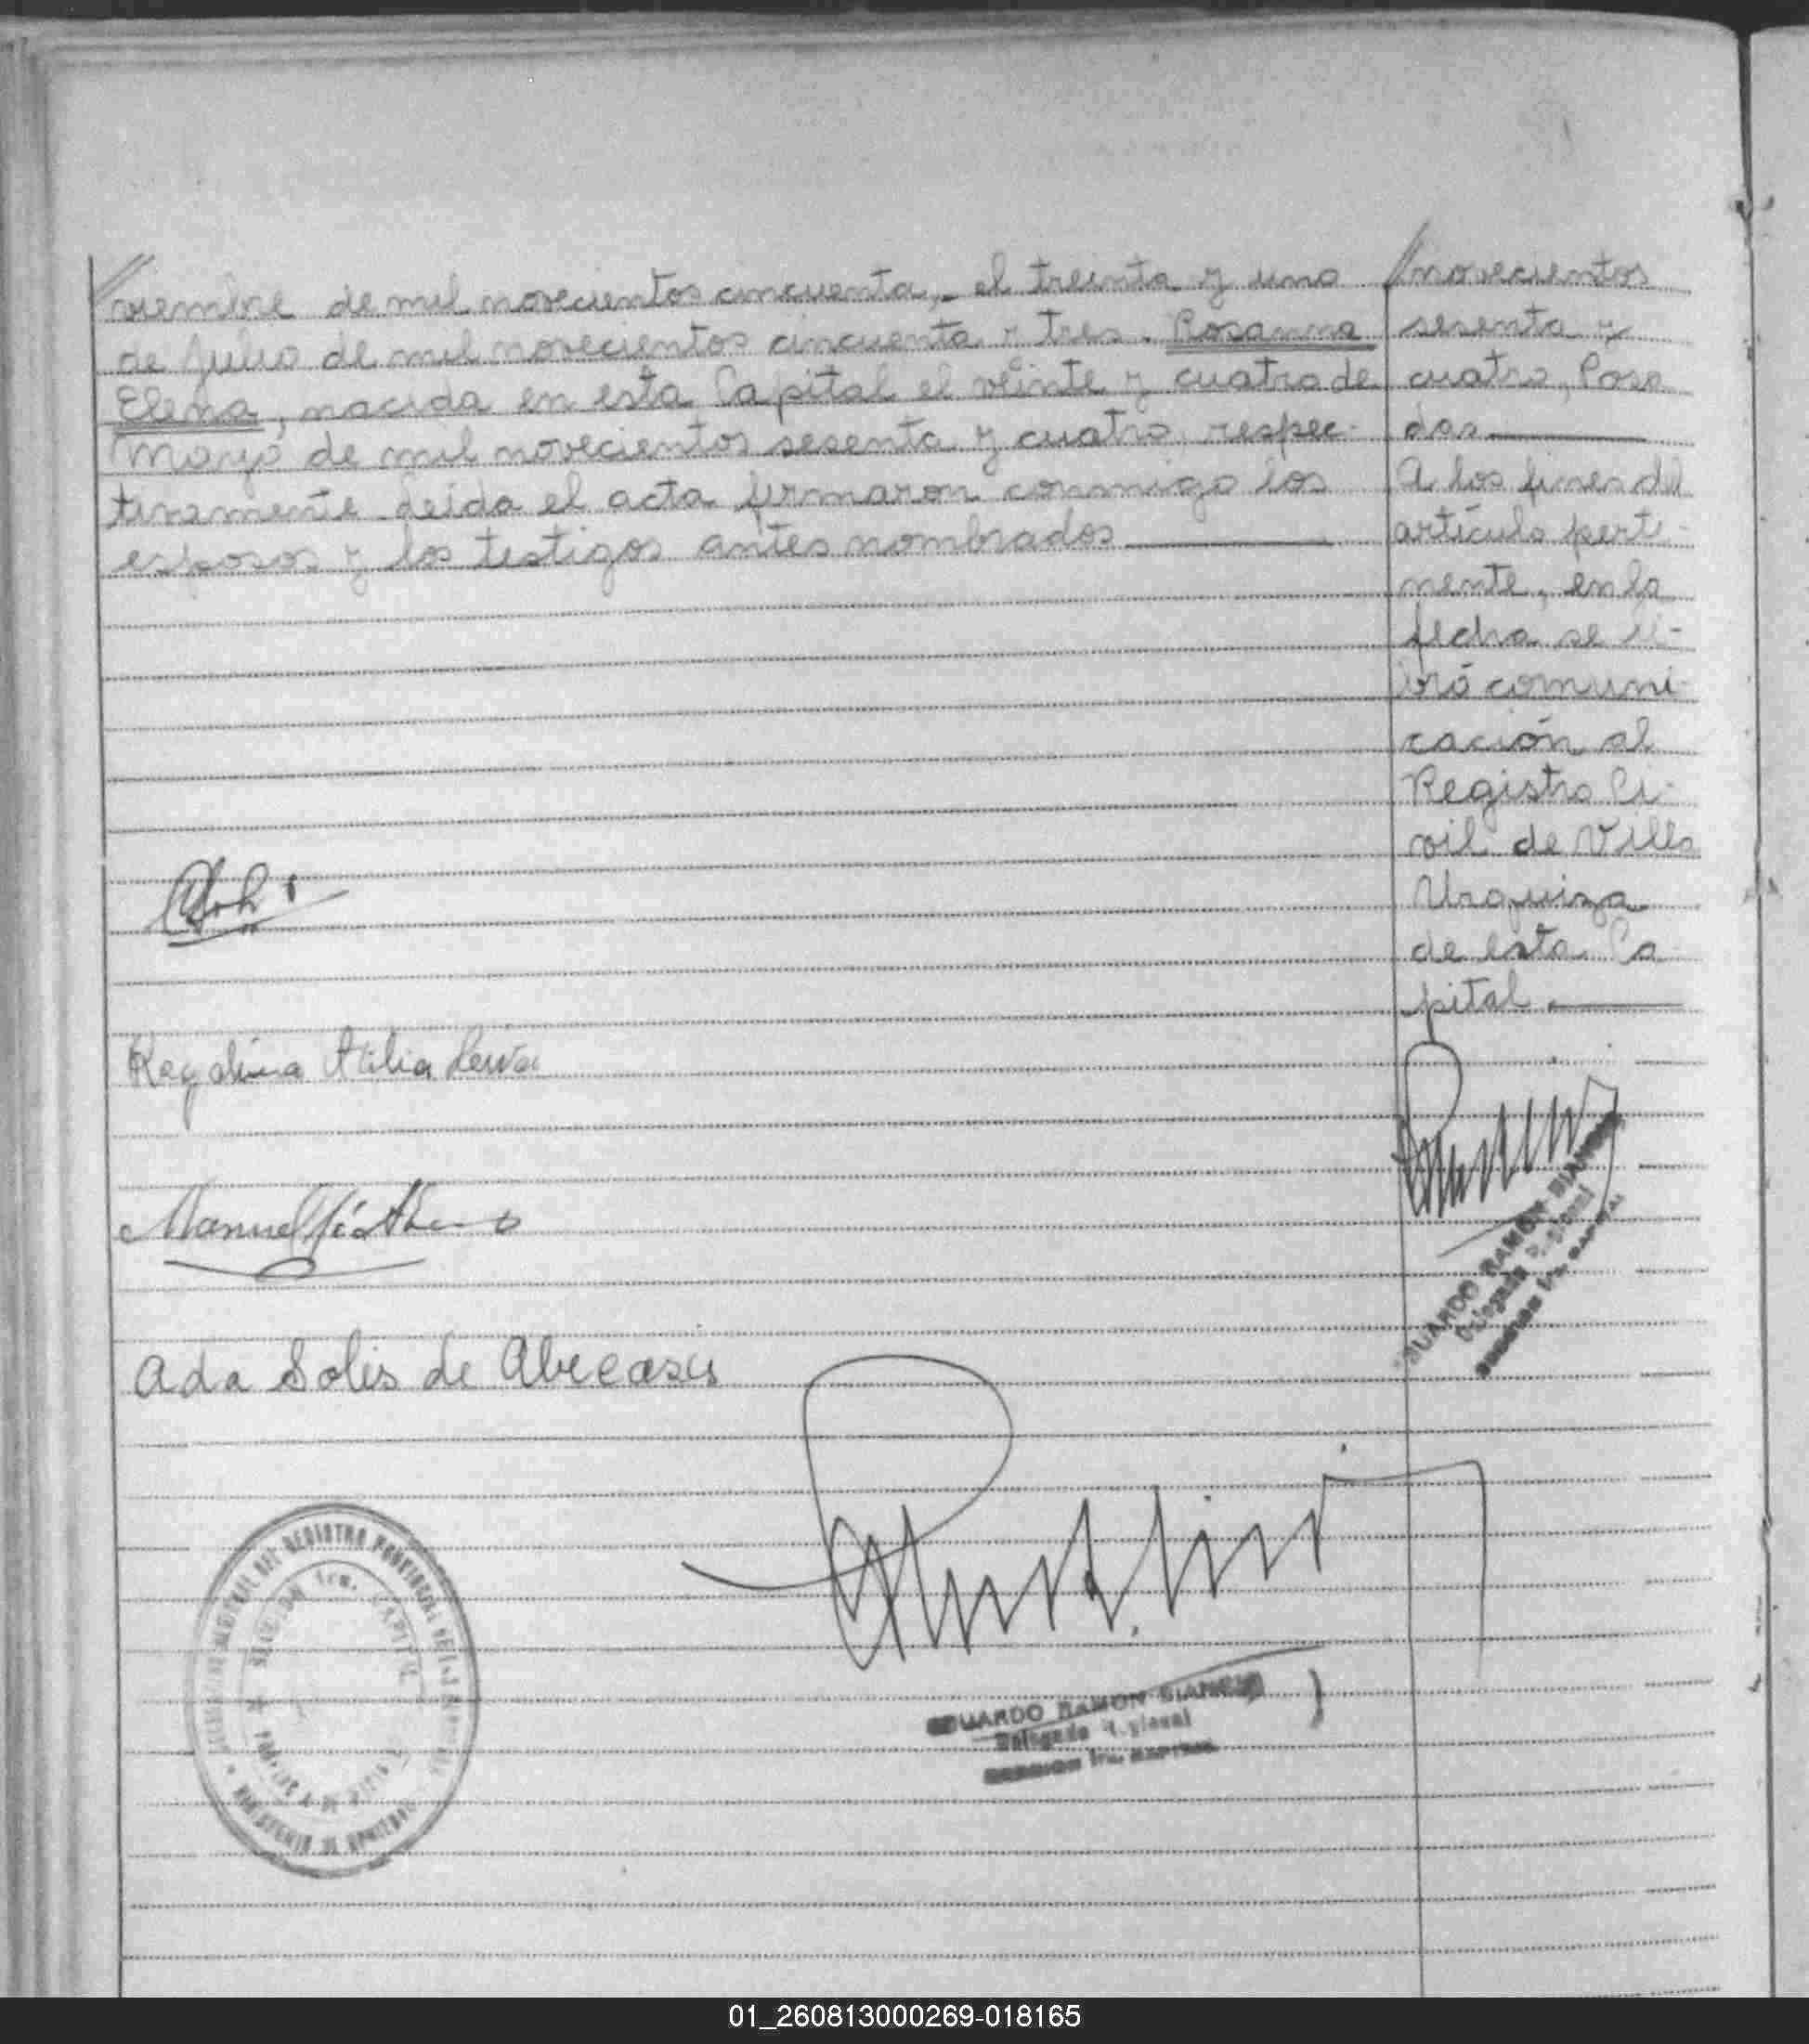 viembre de mil novecientos cincuenta, el treinta y uno
de Julio de mil novecientos cincuenta y tres. Rosanna
Elena, nacida en esta Capital el veinte y cuatro de
Marzo de mil novecientos sesenta y cuatro, respec-
tivamente. Leída el acta firmaron conmigo los
esposos y los testigos antes nombrados
novecientos
sesenta y
cuatro, Posa
das
A los fines del
artículo perti-
nente, en la
fecha se li-
bró comuni-
cación al
Registro Ci-
vil de Villa
Urquiza
de esta Ca
pital
Atilia
Manuel
Ada Solis de Abecasis
EDUARDO RAMON BIANCHI
Delegado Regional
SECCION 1ra. CAPITAL
EDUARDO RAMON BIANCHI
Delegado Regional
SECCION 1ra. CAPITAL
DEL REGISTRO PROVINCIAL DE LAS
SECCION 1ra. CAPITAL
01_260813000269-018165